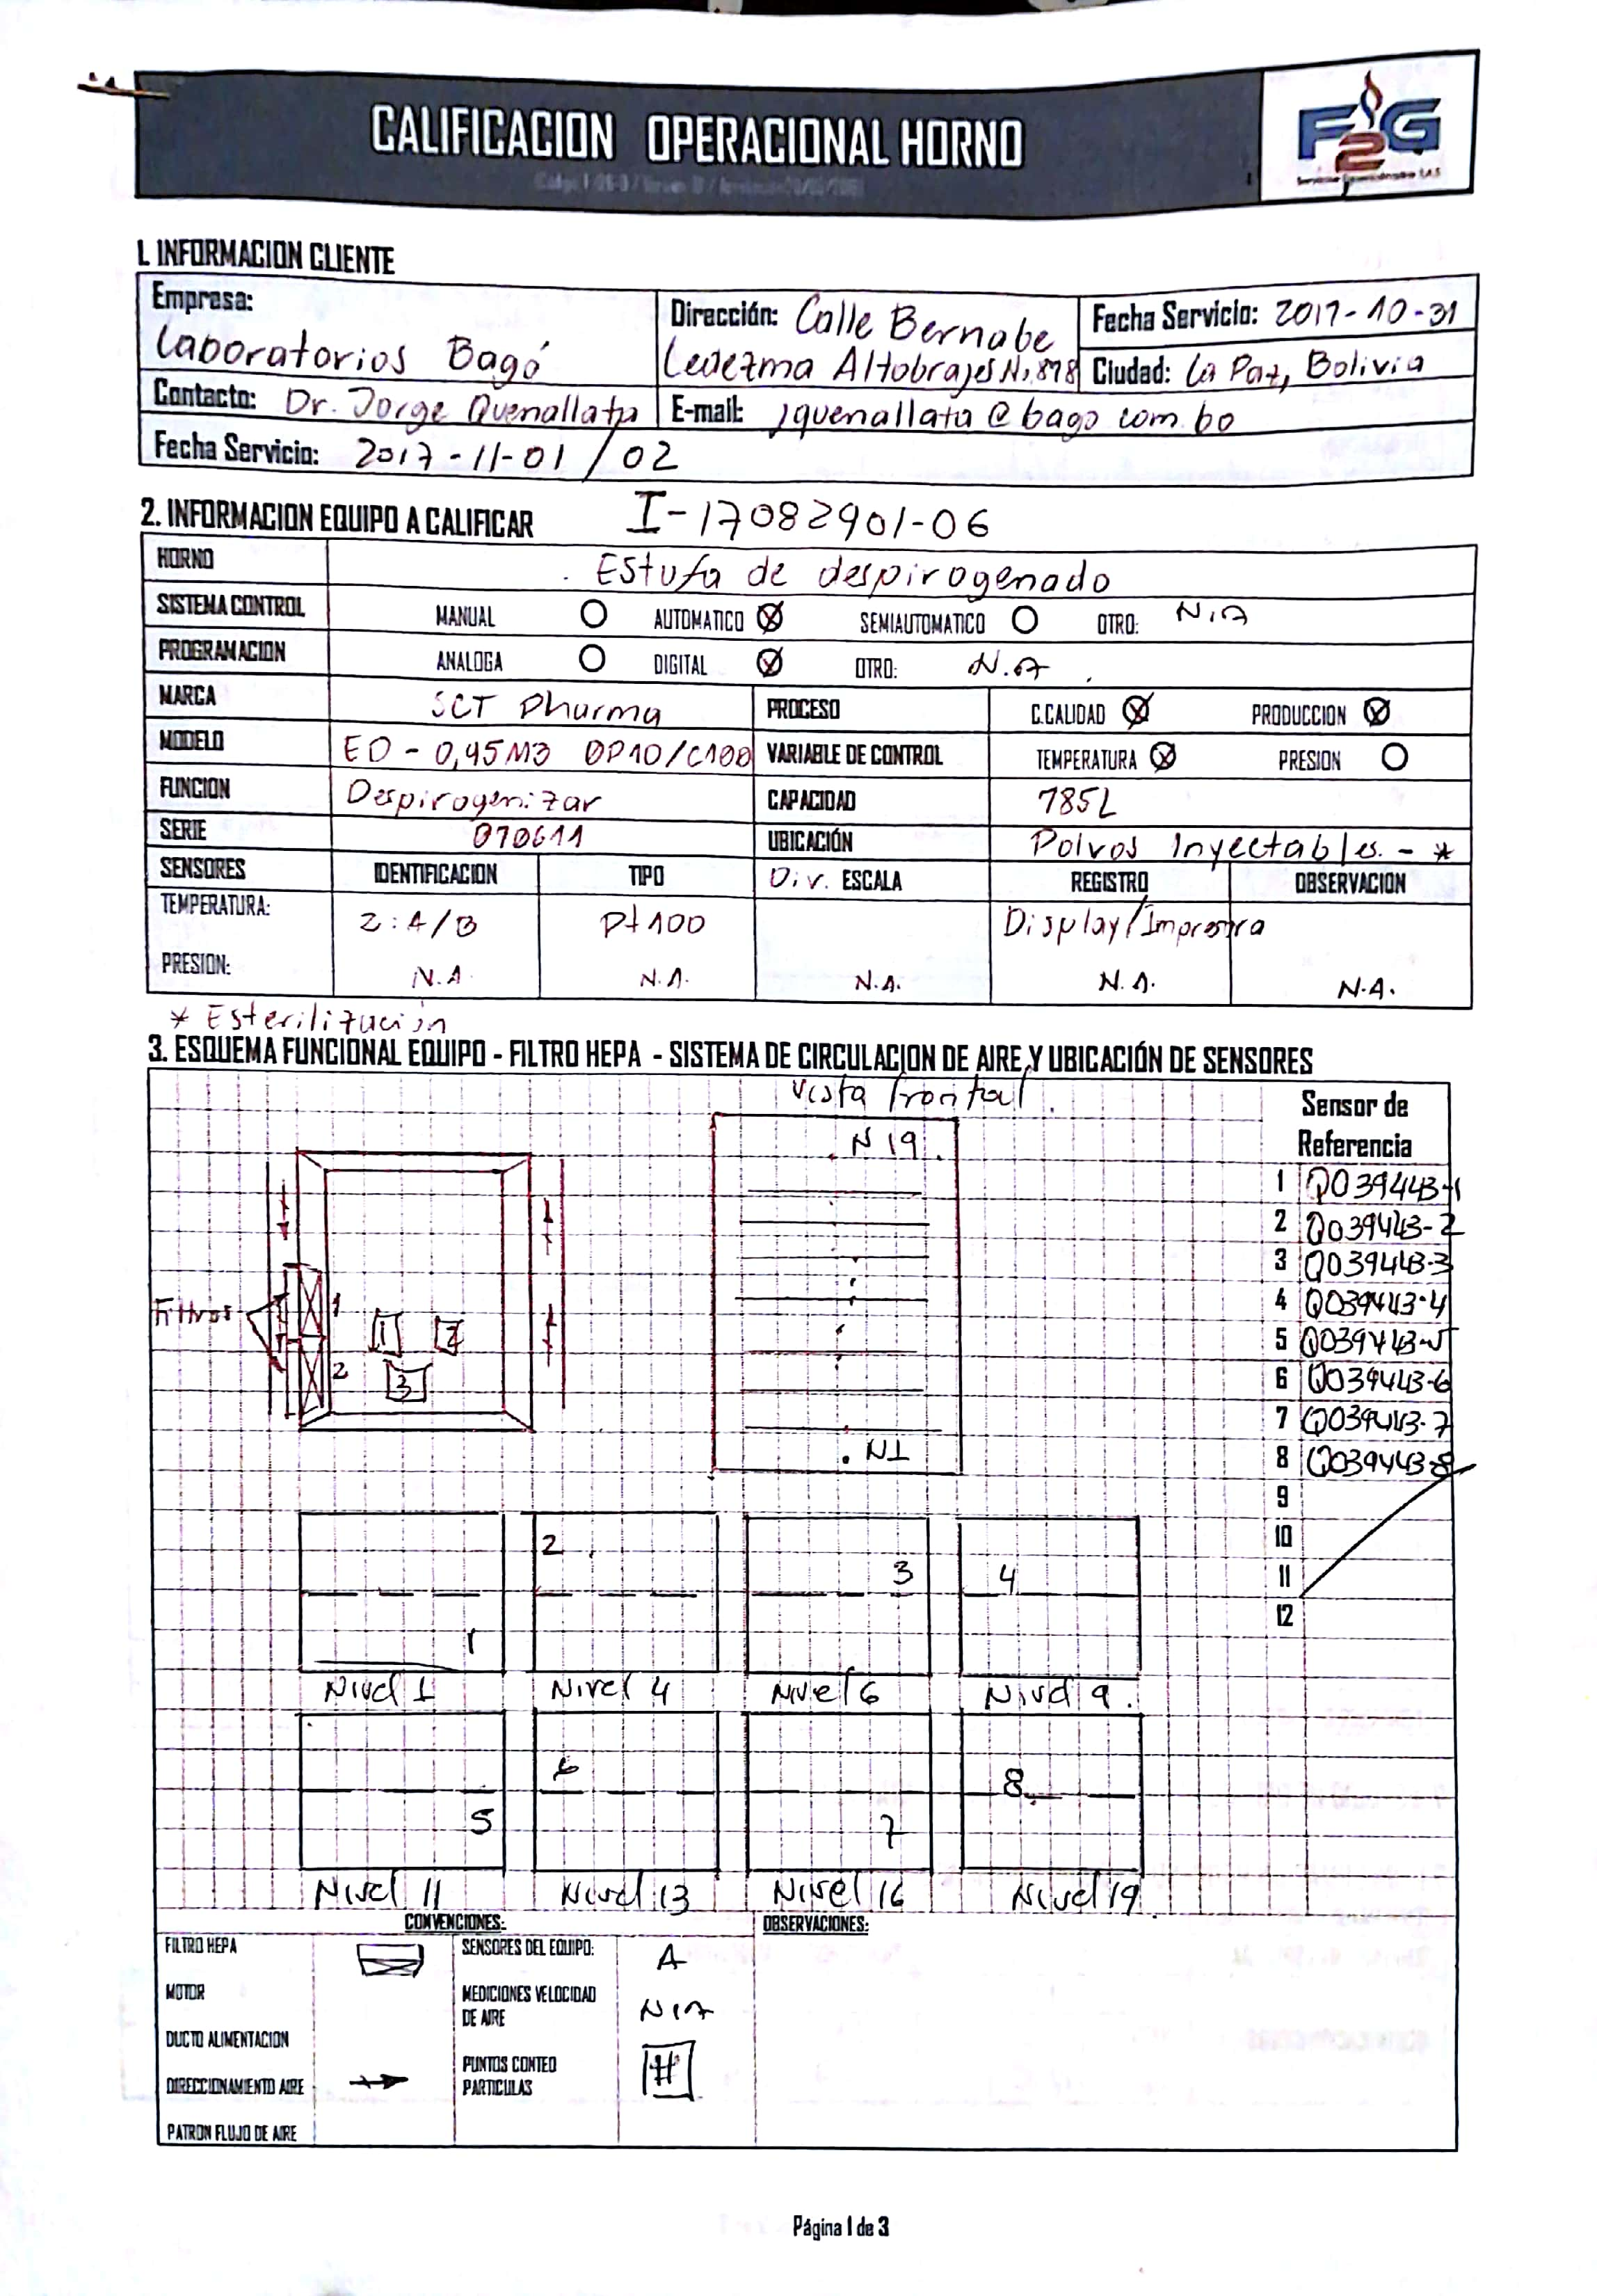 CALIFICACION OPERACIONAL HORNO
F2G
1. INFORMACION CLIENTE
Empresa: Laboratorios Bagó
Dirección: Calle Bernabe Ledezma Altobrajes N. 878
Fecha Servicio: 2017-10-31
Ciudad: La Paz, Bolivia
Contacto: Dr. Jorge Quenallata
E-mail: jquenallata@bago.com.bo
Fecha Servicio: 2017-11-01/02
2. INFORMACION EQUIPO A CALIFICAR I-17082901-06
HORNO Estufa de despirogenado
SISTEMA CONTROL MANUAL AUTOMATICO SEMIAUTOMATICO OTRO: N.A
PROGRAMACION ANALOGA DIGITAL OTRO: N.A.
MARCA SCT Pharma PROCESO C.CALIDAD PRODUCCION
MODELO ED-0,45M3 DP10/C100 VARIABLE DE CONTROL TEMPERATURA PRESION
FUNCION Despirogenizar CAPACIDAD 785L
SERIE 070611 UBICACIÓN Polvos Inyectables. - *
SENSORES IDENTIFICACION TIPO Div. ESCALA REGISTRO OBSERVACION
TEMPERATURA: 2: A/B Pt100 Display/Impresora
PRESION: N.A N.A. N.A. N.A. N.A.
* Esterilización
3. ESQUEMA FUNCIONAL EQUIPO - FILTRO HEPA - SISTEMA DE CIRCULACION DE AIRE Y UBICACIÓN DE SENSORES
Vista frontal.
N 19
Filtros
1
2
1 2
3
N1
Sensor de Referencia
1 Q039443-1
2 Q039443-2
3 Q039443-3
4 Q039443-4
5 Q039443-5
6 Q039443-6
7 Q039443-7
8 Q039443-8
9
10
11
12
1 2 3 4
Nivel 1 Nivel 4 Nivel 6 Nivel 9.
5 6 7 8
Nivel 11 Nivel 13 Nivel 16 Nivel 19
CONVENCIONES:
OBSERVACIONES:
FILTRO HEPA
SENSORES DEL EQUIPO: A
MOTOR
MEDICIONES VELOCIDAD DE AIRE N.A
DUCTO ALIMENTACION
DIRECCIONAMIENTO AIRE
PUNTOS CONTEO PARTICULAS #
PATRON FLUJO DE AIRE
Página 1 de 3